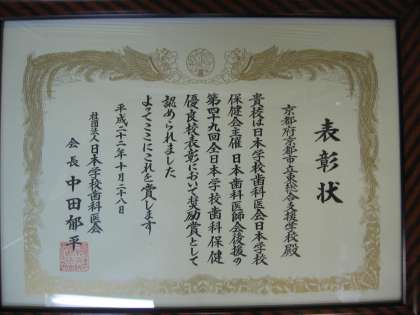 表彰状
京都府京都市立東総合支援学校殿
貴校は日本学校歯科医会日本学校
保健会主催日本歯科医師会後援の
第四十九回全日本学校歯科保健
優良校表彰において奨励賞として
認められました
よってここにこれを賞します
平成二十二年十月二十八日
社団法人日本学校歯科医会
会長 中田郁平